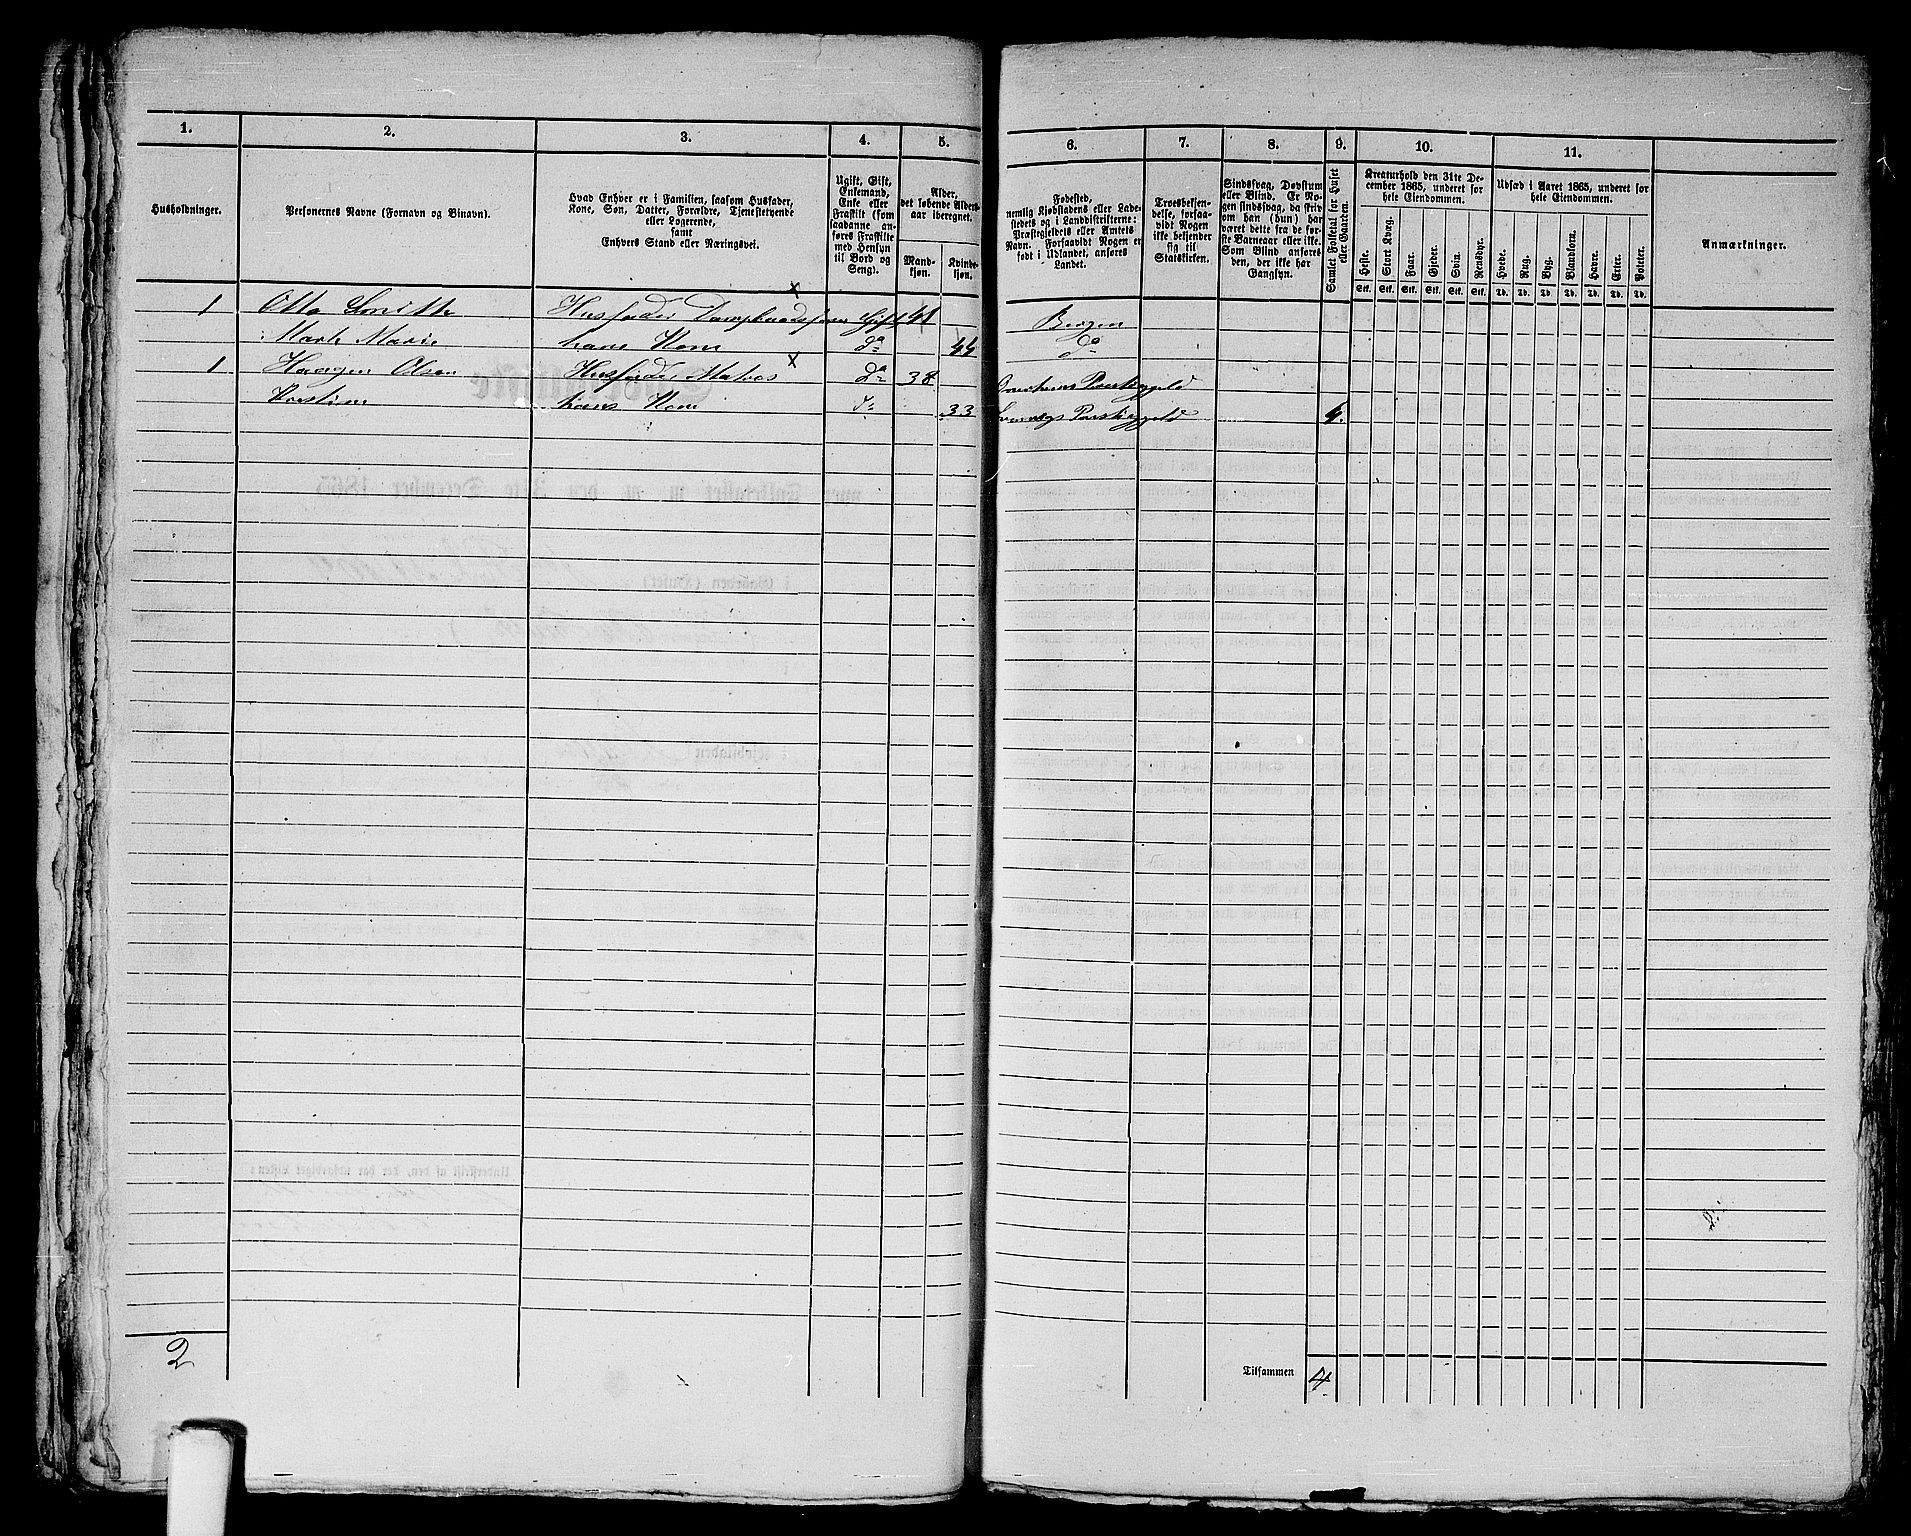 1. 2. 3. 4. 5. 6. 7. 8. 9. 10. 11.
Husholdninger.
Personernes Navne (Fornavn og Binavn).
Hvad Enhver er i Familien, saasom Husfader,
Kone, Søn, Datter, Forældre, Tjenestetyende
eller Logerende,
samt
Enhvers Stand eller Næringsvei.
Ugift, Gift,
Enkemand,
Enke eller
Fraskilt (som
saadanne an-
føres Fraskilte
med Hensyn
til Bord og
Seng).
Alder,
det løbende Alders-
aar iberegnet.
Mand-
kjøn.
Kvinde-
kjøn.
Fødested,
nemlig Kjøbstadens eller Lade-
stedets og i Landdistrikterne:
Præstegjeldets eller Amtets
Navn. Forsaavidt Nogen er
født i Udlandet, anføres
Landet.
Troesbekjen-
delse, forsaa-
vidt Nogen
ikke bekjender
sig til
Statskirken.
Sindssvag, Døvstum
eller Blind. Er No-
gen sindssvag, da skriv
om han (hun) har
været dette fra de før-
ste Barneaar eller ikke.
Som Blind anføres
den, der ikke har
Gangsyn.
Samlet Folketal for Huset
eller Gaarden.
Kreaturhold den 31te De-
cember 1865, underet for
hele Eiendommen.
Heste. Stort Kvæg. Faar. Gjeder. Svin. Rensdyr.
Stk. Stk. Stk. Stk. Stk. Stk.
Udsæd i Aaret 1865, underet for
hele Eiendommen.
Hvede. Rug. Byg. Blandkorn. Havre. Erter. Poteter.
Td. Td. Td. Td. Td. Td. Td.
Anmærkninger.
1 Otto Husfader Gift 41 Bergen
Marie hans Kone do 44 do
1 Haagen Olsen Husfader Matros do 38 Præstegjeld
hans Kone do 33 Præstegjeld 4.
2
Tilsammen 4.